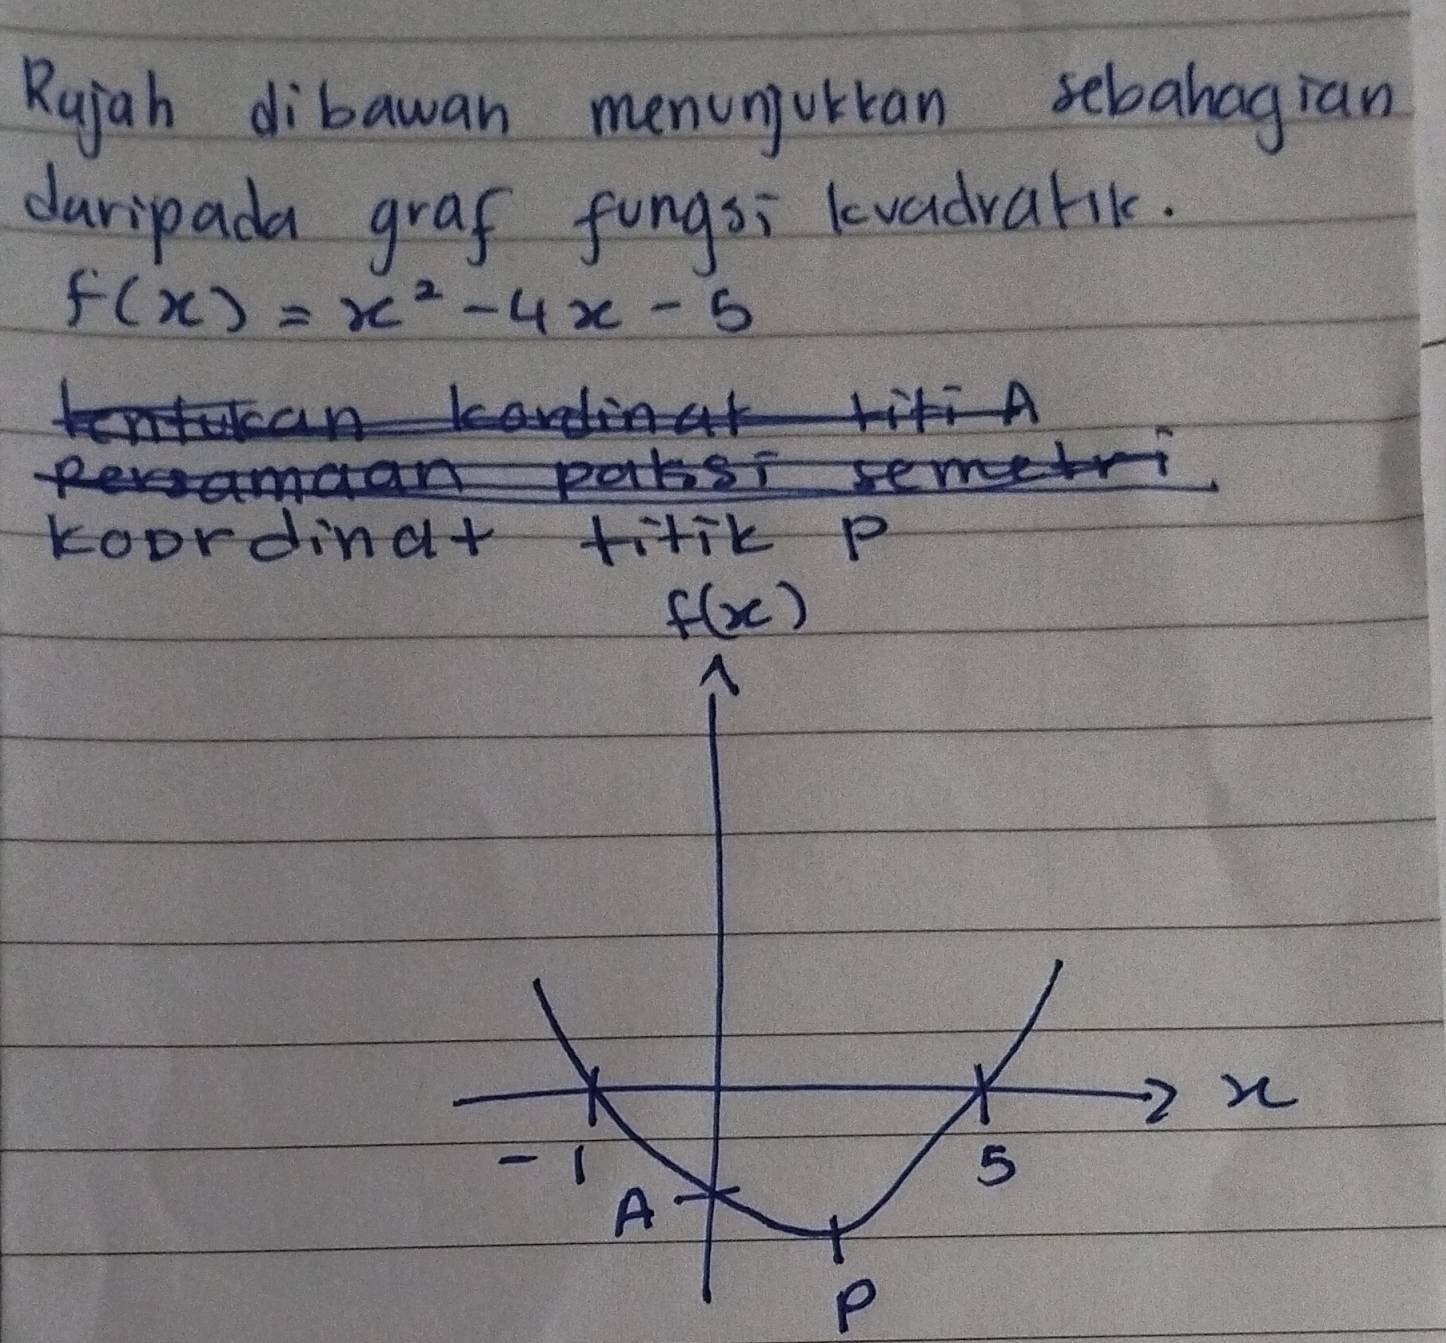 Rajah dibawah menunjukkan sebahagian
daripada graf fungsi kuadratik.
f(x) = x² - 4x - 5
tentukan kordinat titi A
persamaan paksi semetri
koordinat titik P
f(x)
x
-1
5
A
P